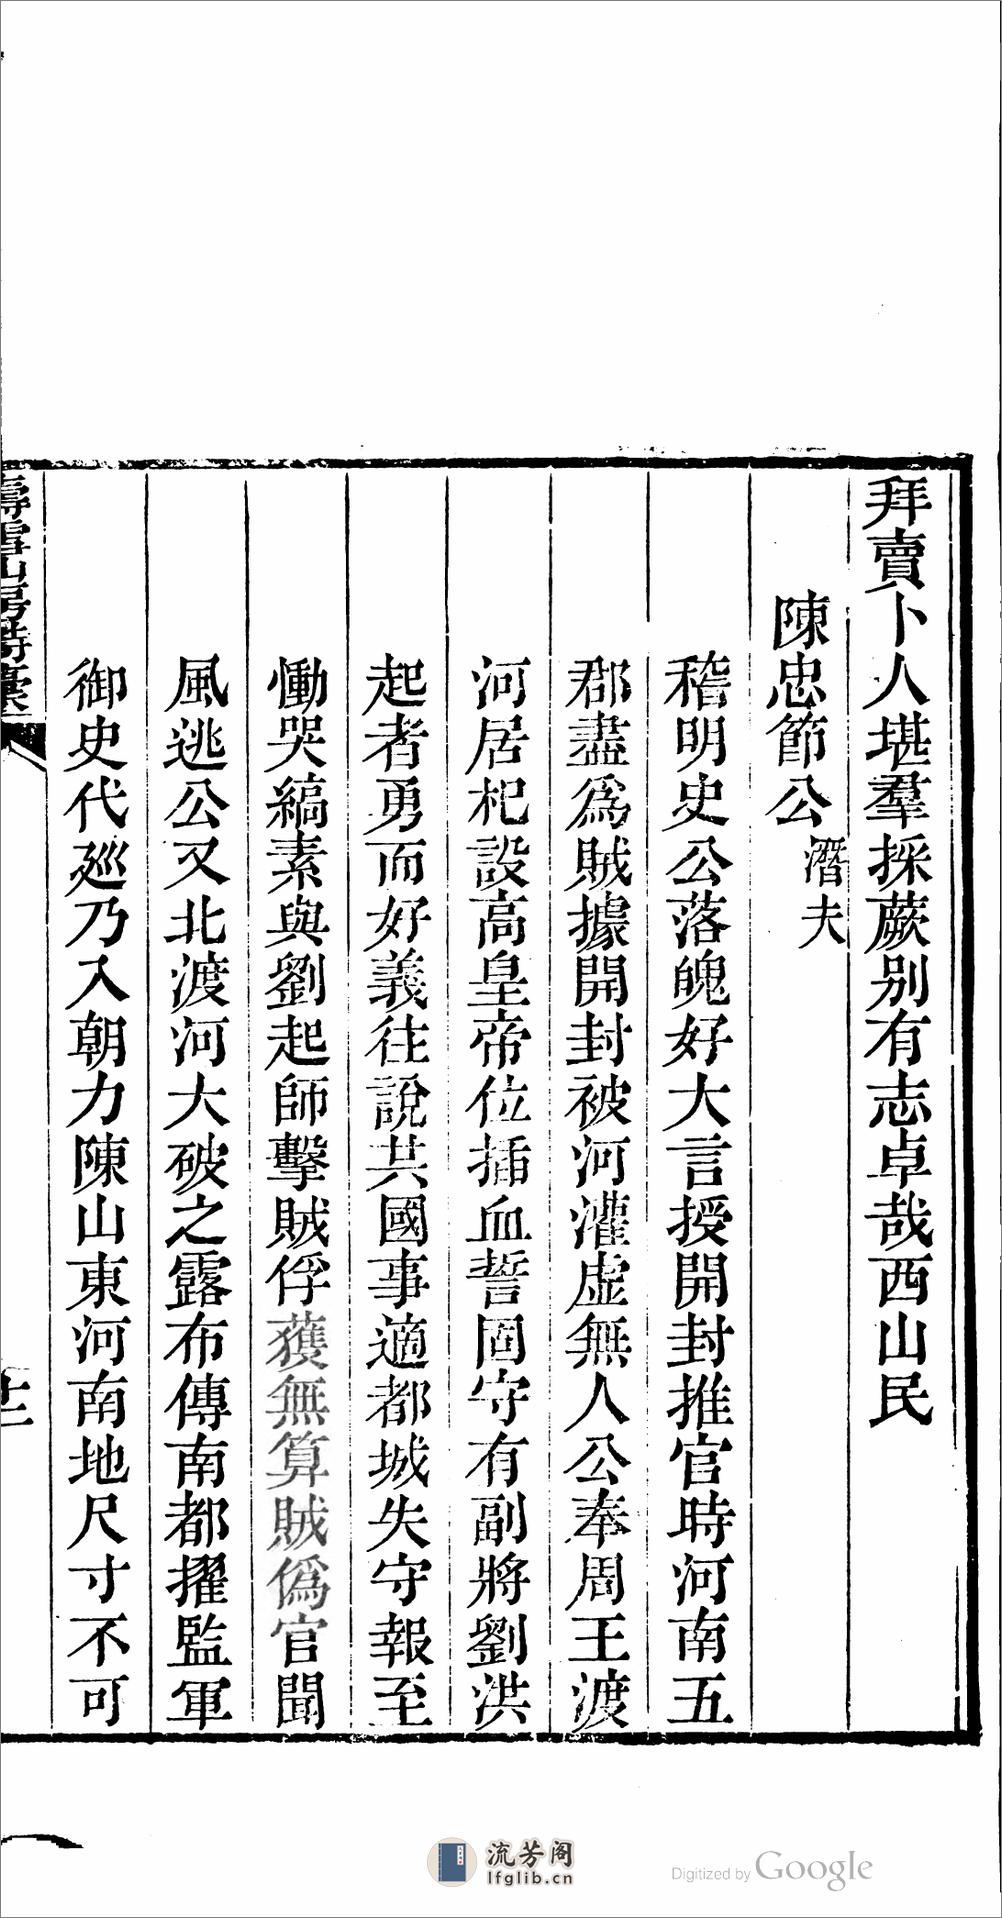 拜賣卜人堪羣採蕨别有志卓哉西山民
陳忠節公潛夫
稽明史公落魄好大言授開封推官時河南五
郡盡爲賊據開封被河灌虛無人公奉周王渡
河居杞設高皇帝位插血誓固守有副將劉洪
起者勇而好義往說共國事適都城失守報至
慟哭縞素與劉起師擊賊俘獲無算賊僞官聞
風逃公又北渡河大破之露布傳南都擢監軍
御史代廵乃入朝力陳山東河南地尺寸不可
壽雪山房詩藁
十二
流芳阁
lfglib.cn
Digitized by Google